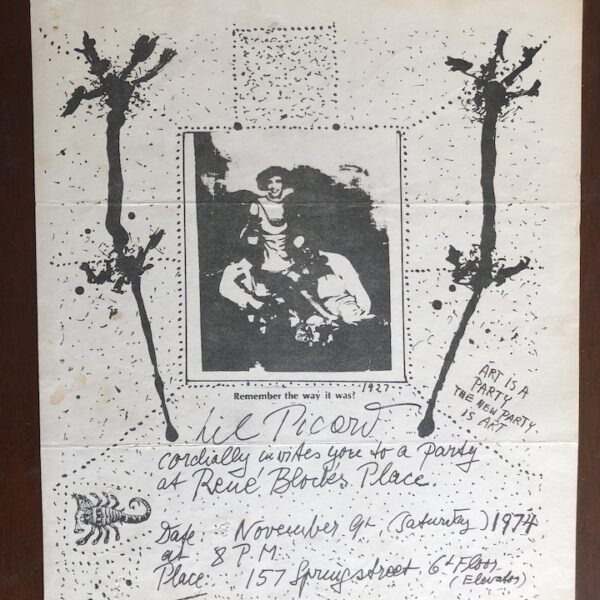 1927
Remember the way it was?
ART IS A
PARTY
THE NEW PARTY
IS ART
Lil Picard
cordially invites you to a party
at René Block's Place.
Date : November 9th, (Saturday) 1974
at 8 P.M.
Place 157 Springstreet 6th Floor
(Elevator)